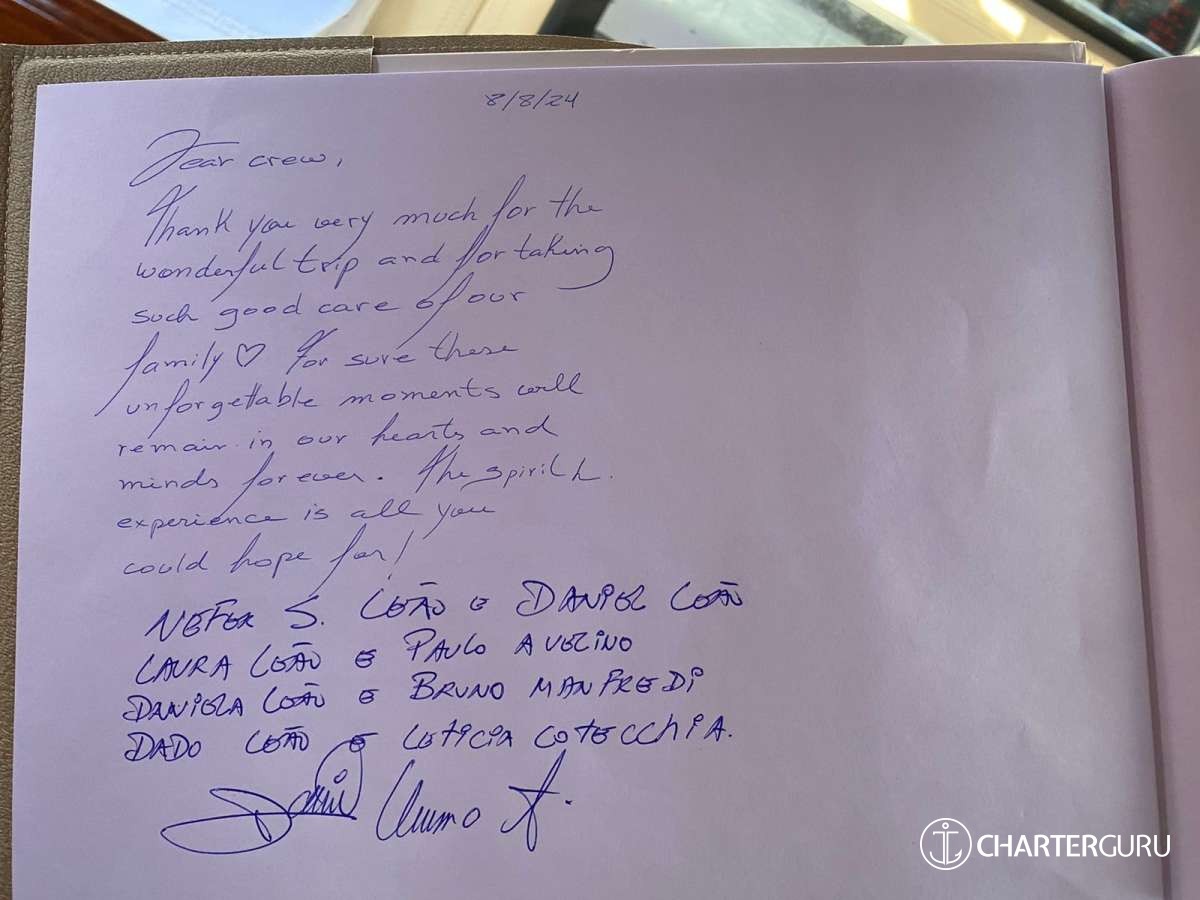 8/8/24
Dear crew,
Thank you very much for the
wonderful trip and for taking
such good care of our
family ♡ For sure these
unforgettable moments will
remain in our hearts and
minds forever. The spirit
experience is all you
could hope for!
NEFER S. LEÃO E DANIEL LEÃO
LAURA LEÃO E PAULO AVELINO
DANIELA LEÃO E BRUNO MANFREDI
DADO LEÃO E LETICIA COTECCHIA.
CHARTERGURU